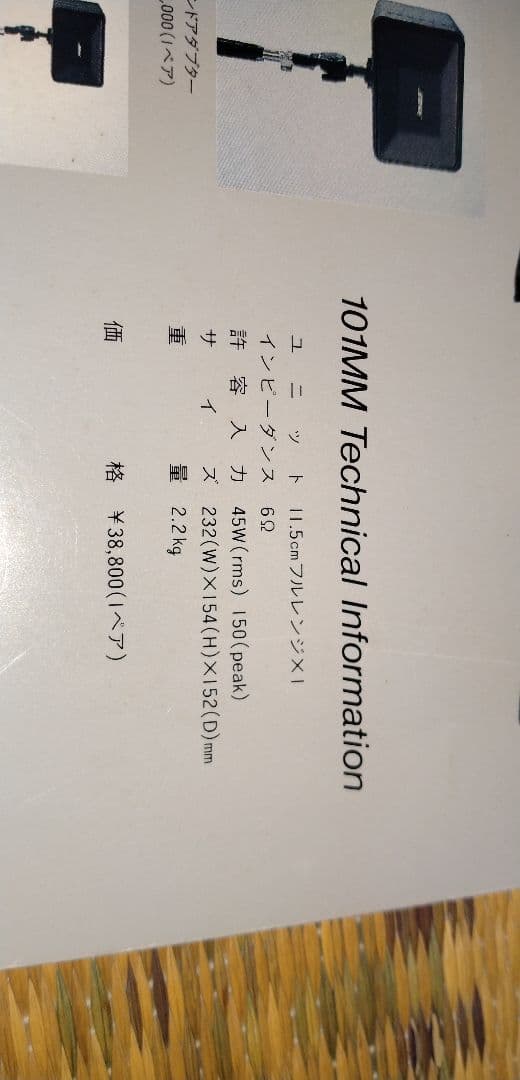 ンドアダプター
,000(1ペア)
101MM Technical Information
ユニット 11.5cmフルレンジ×1
インピーダンス 6Ω
許容入力 45W(rms) 150(peak)
サイズ 232(W)×154(H)×152(D)mm
重量 2.2kg
価格 ¥38,800(1ペア)